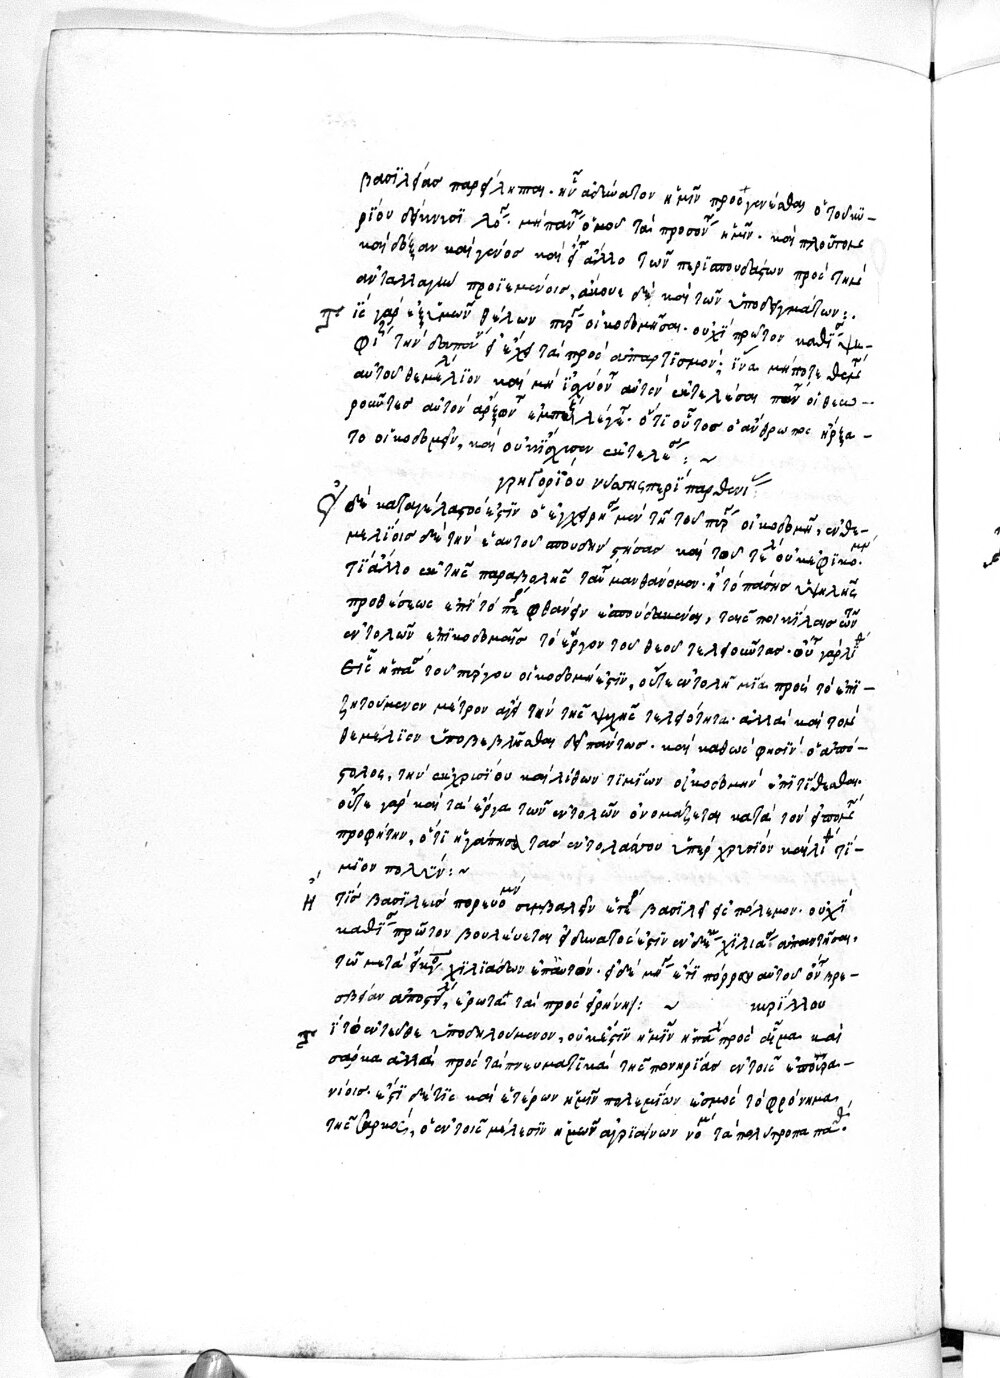 βασιλείας παρείληπται. ἣν ἀδύνατον ἡμῖν προσγενέσθαι ὁ τοῦ κυ-
ρίου δείκνυσι λόγος. μὴ πάντα ὁμοῦ τὰ προσόντα ἡμῖν. καὶ πλοῦτον
καὶ δόξαν καὶ γένος καὶ εἴ τι ἄλλο τῶν περισπουδάστων πρὸς τὴν
ἀνταλλαγὴν προϊεμένοις, ἄκουε δὲ καὶ τῶν ὑποδειγμάτων:.
Τίς γὰρ ἐξ ὑμῶν θέλων πύργον οἰκοδομῆσαι. οὐχὶ πρῶτον καθίσας ψη-
φίζει τὴν δαπάνην εἰ ἔχει τὰ πρὸς ἀπαρτισμόν; ἵνα μήποτε θέντος
αὐτοῦ θεμέλιον καὶ μὴ ἰσχύοντος αὐτὸν ἐκτελέσαι πάντες οἱ θεω-
ροῦντες αὐτὸν ἄρξωνται ἐμπαίζειν λέγοντες. ὅτι οὗτος ὁ ἄνθρωπος ἤρξα-
το οἰκοδομεῖν, καὶ οὐκ ἴσχυσεν ἐκτελέσαι:~
γρηγορίου νύσης περὶ παρθενίας:
Ὁ δὲ καταγέλαστός ἐστιν ὁ ἐγχειρήσας μὲν τῇ τοῦ πύργου οἰκοδομῇ, ἐν θε-
μελίοις δὲ τὴν ἑαυτοῦ σπουδὴν στήσας καὶ τοῦ τέλους οὐκ ἐφικόμενος.
τί ἄλλο ἐκ τῆς παραβολῆς ταύτης μανθάνομεν. ἢ τὸ πάσης ὑψηλῆς
προθέσεως ἐπὶ τὸ πέρας φθάνειν σπουδάζειν, ταῖς ποικίλαις τῶν
ἐντολῶν ἐποικοδομαῖς τὸ ἔργον τοῦ θεοῦ τελειοῦντας. οὔτε γὰρ λί-
θος εἷς ἡ πᾶσα τοῦ πύργου οἰκοδομή ἐστιν, οὔτε ἐντολὴ μία πρὸς τὸ ἐπι-
ζητούμενον μέτρον ἄγει τὴν τῆς ψυχῆς τελειότητα. ἀλλὰ καὶ τὸν
θεμέλιον ὑποβεβλῆσθαι δεῖ πάντως. καὶ καθώς φησιν ὁ ἀπό-
στολος, τὴν ἐκ χρυσίου καὶ λίθων τιμίων οἰκοδομὴν ἐπιτίθεσθαι.
οὕτω γὰρ καὶ τὰ ἔργα τῶν ἐντολῶν ὀνομάζεται κατὰ τὸν εἰπόντα
προφήτην, ὅτι ἠγάπησα τὰς ἐντολάς σου ὑπὲρ χρυσίον καὶ λίθον τί-
μιον πολύν:~
Ἢ τίς βασιλεὺς πορευόμενος συμβαλεῖν ἑτέρῳ βασιλεῖ εἰς πόλεμον. οὐχὶ
καθίσας πρῶτον βουλεύεται εἰ δυνατός ἐστιν ἐν δέκα χιλιάσιν ἀπαντῆσαι,
τῷ μετὰ εἴκοσι χιλιάδων ἐπ' αὐτόν. εἰ δὲ μήγε ἔτι πόρρω αὐτοῦ ὄντος πρε-
σβείαν ἀποστείλας, ἐρωτᾷ τὰ πρὸς εἰρήνην:~ κυρίλλου
Τί τὸ ἐντεῦθεν ὑποδηλούμενον, οὐκ ἔστιν ἡμῖν ἡ πάλη πρὸς αἷμα καὶ
σάρκα ἀλλὰ πρὸς τὰ πνευματικὰ τῆς πονηρίας ἐν τοῖς ἐπουρα-
νίοις. ἔστι δέ τις καὶ ἑτέρων ἡμῖν πολεμίων ἑσμὸς τὸ φρόνημα
τῆς σαρκός, ὁ ἐν τοῖς μέλεσιν ἡμῶν ἀγριαίνων νόμος τὰ πολύτροπα πάθη.